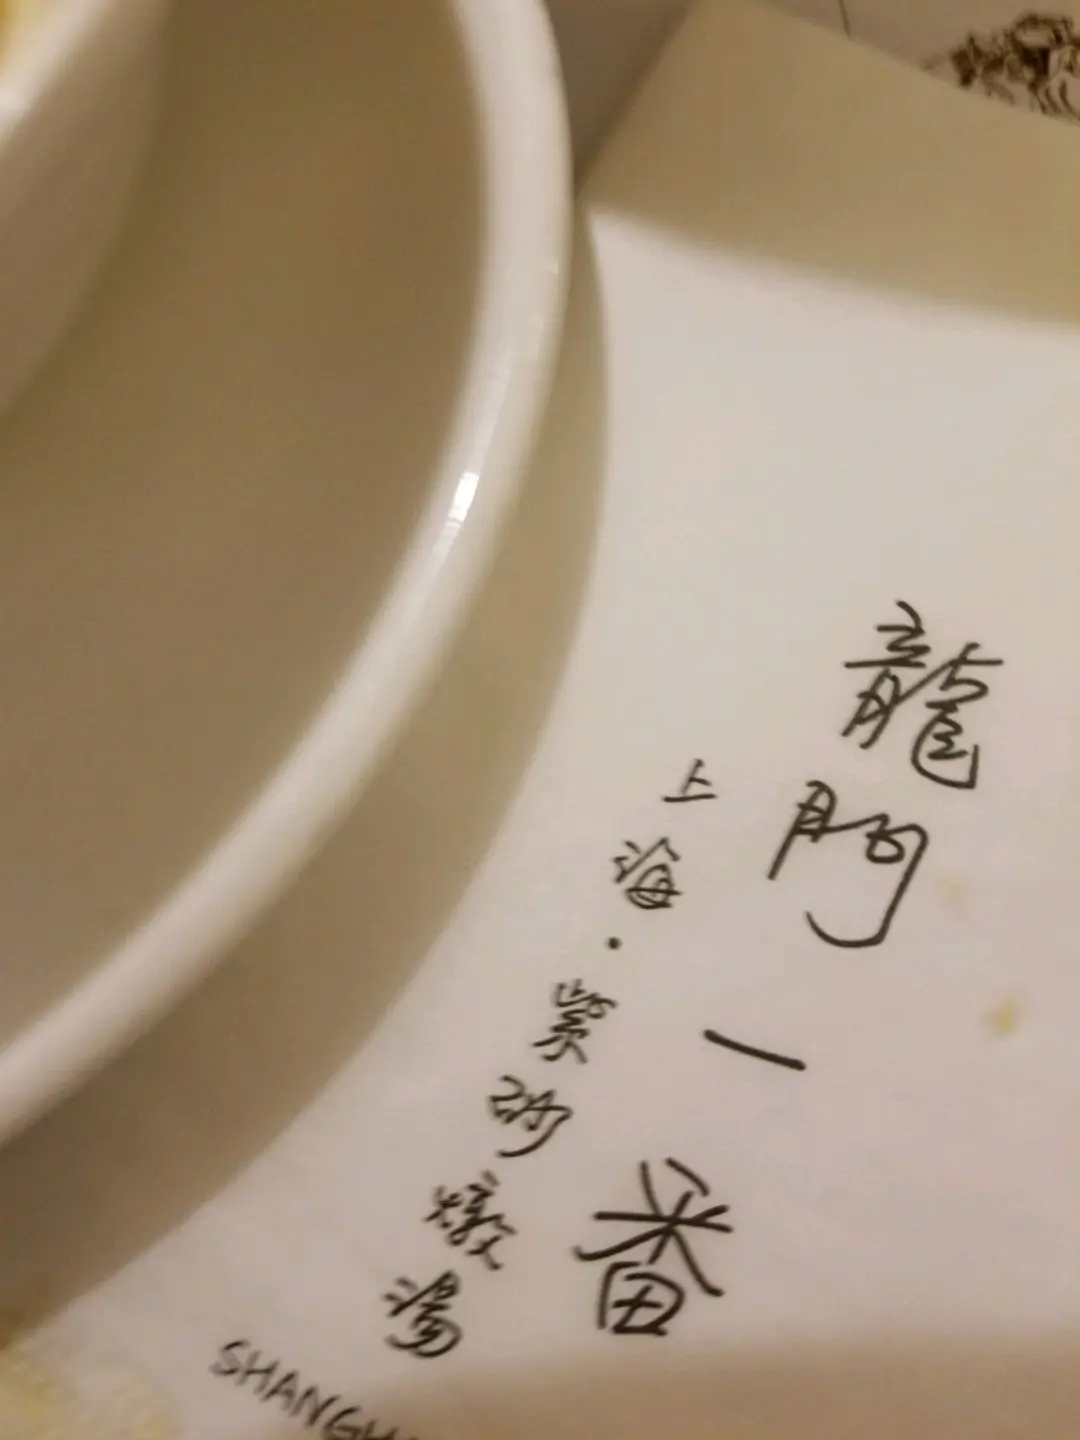 龍門一番
上海·紫砂燉湯
SHANGH